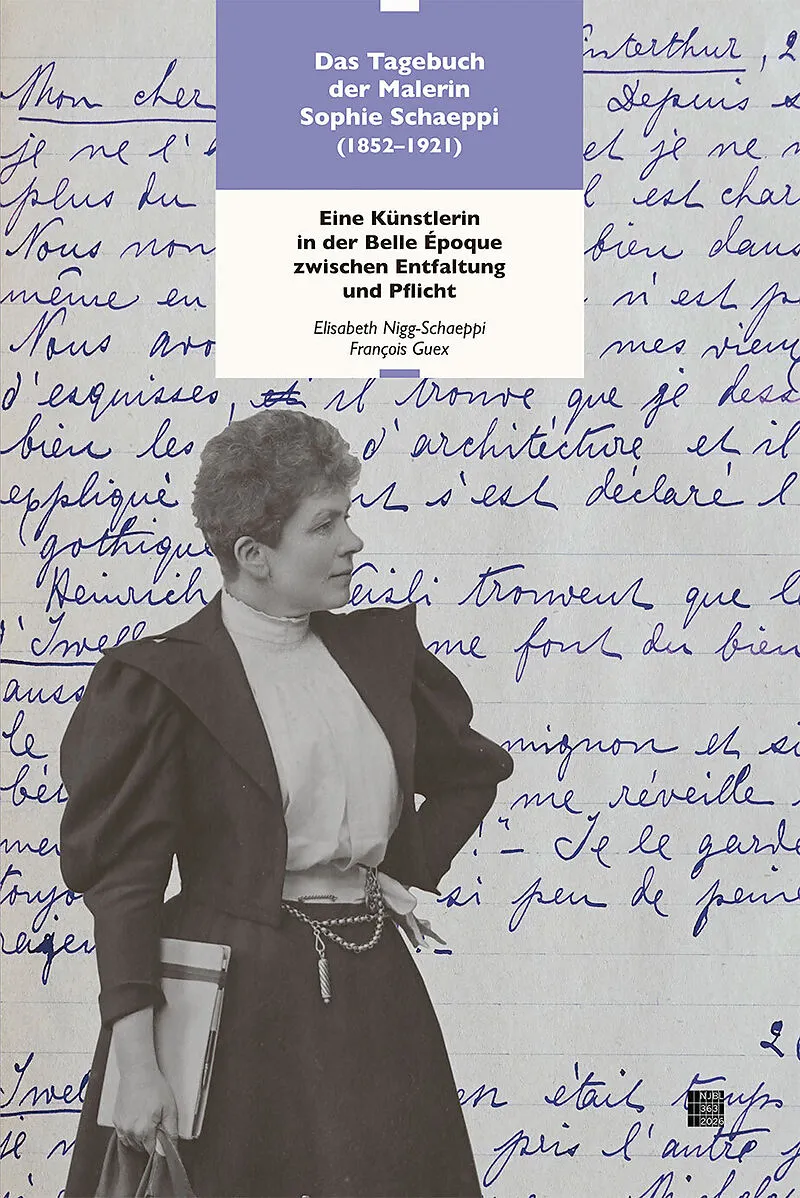 Das Tagebuch
der Malerin
Sophie Schaeppi
(1852–1921)
Eine Künstlerin
in der Belle Époque
zwischen Entfaltung
und Pflicht
Elisabeth Nigg-Schaeppi
François Guex
interthur, 2
Mon cher Depuis s
je ne l' et je ne
plus du est char
Nous non bien dans
même en n'est p
Nous avo mes vieu
d'esquisses, il trouve que je dess
bien les d'architecture et il
expliqué t s'est déclaré l
gothique
Heinrich eisli trouvent que le
d' me font du bien
auss
le mignon et si
bé me réveille
me !"– Je le garde
toujo si peu de peine
ragen
2
en était temps
je n pris l'autre j
NJB
363
2026